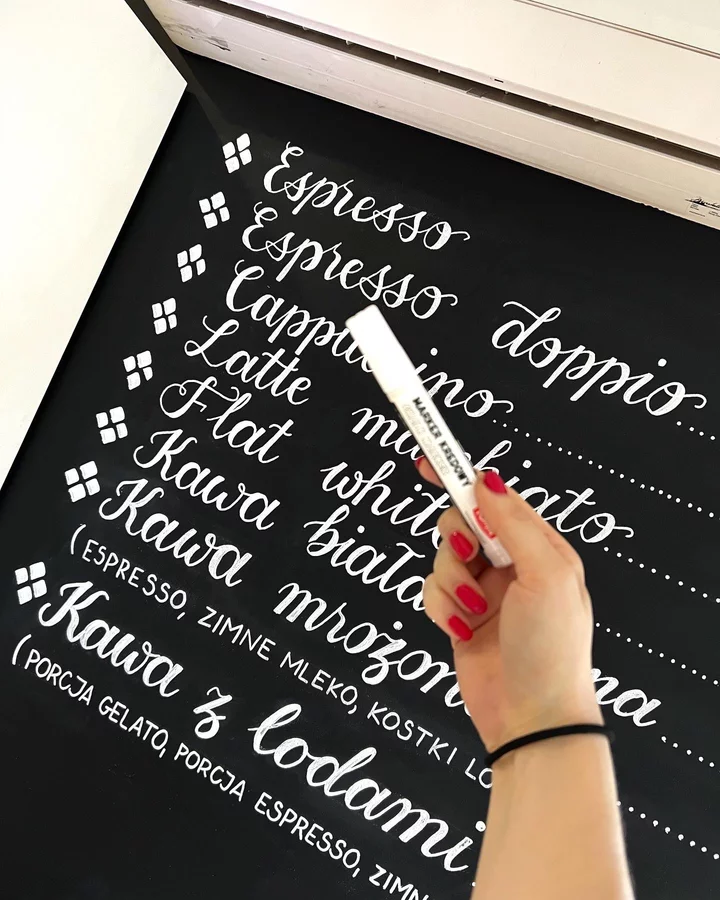 Espresso
Espresso doppio
Cappuccino
Latte macchiato
Flat white
Kawa biała
Kawa mrożona
(ESPRESSO, ZIMNE MLEKO, KOSTKI
Kawa z lodami
(PORCJA GELATO, PORCJA ESPRESSO,
MARKER KREDOWY